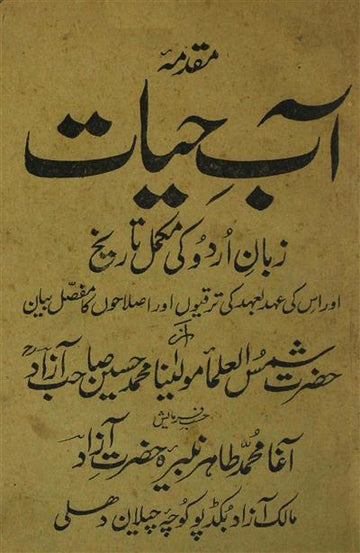 مقدمۂ
آبِ حیات
زبانِ اُردُو کی مکمل تاریخ
اور اس کی عہد بعہد کی ترقیوں اور اصلاحوں کا مفصّل بیان
از
حضرت شمسُ العلما مولٰینا محمد حسین صاحب آزادؔ
حسب فرمایش
آغا محمدؐ طاہر نبیرہ حضرت آزادؔ
مالک آزاد بُکڈپو کوچہ چیلان دھلی